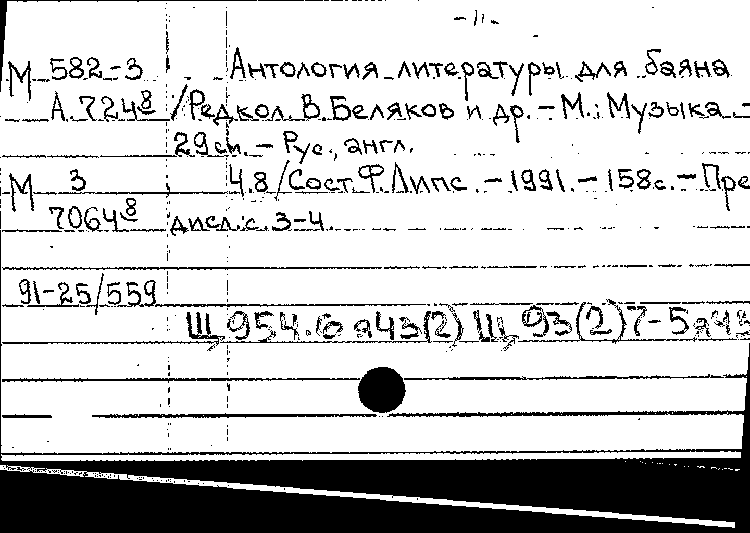 -11-
М 582-3 Антология литературы для баяна
А.7248 /Редкол. В.Беляков и др. - М.: Музыка. -
29см. - Рус., англ.
М 3 Ч.8 /Сост. Ф.Липс. - 1991. - 158с. - Пре
70648 дисл.: с. 3-4.
91-25/559
Щ 954.6 я43(2) Щ 93(2)7-5я43